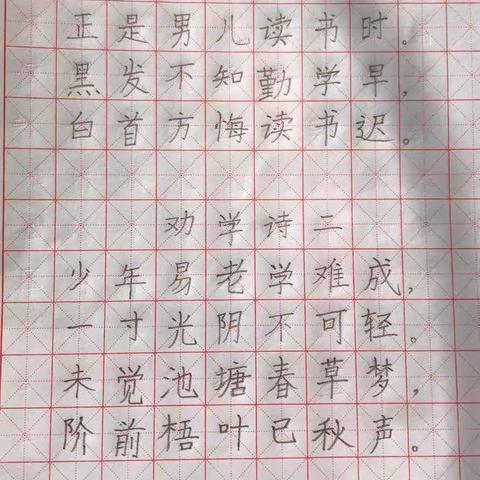 正是男儿读书时。
黑发不知勤学早，
白首方悔读书迟。
劝学诗二
少年易老学难成，
一寸光阴不可轻。
未觉池塘春草梦，
阶前梧叶已秋声。